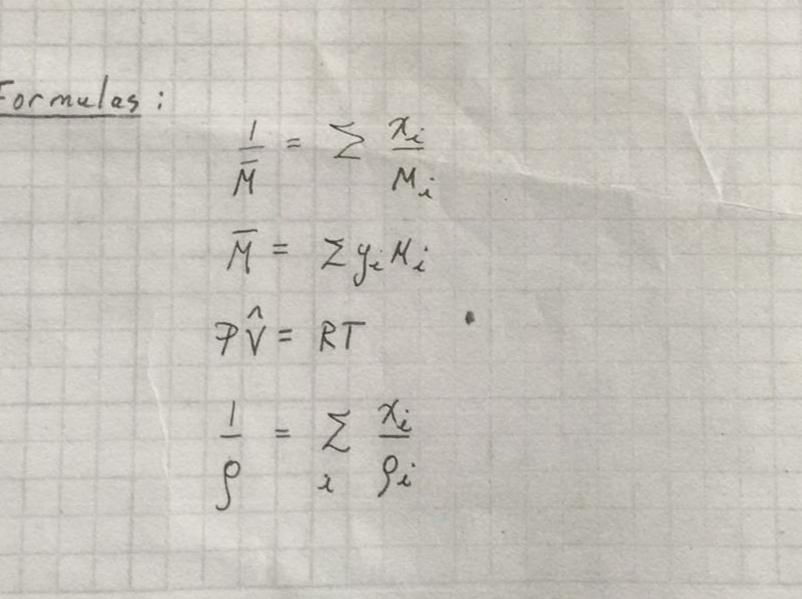 Formulas:
1/M̄ = Σ xᵢ/Mᵢ
M̄ = Σ yᵢ Mᵢ
PV̂ = RT
1/ρ = Σᵢ xᵢ/ρᵢ